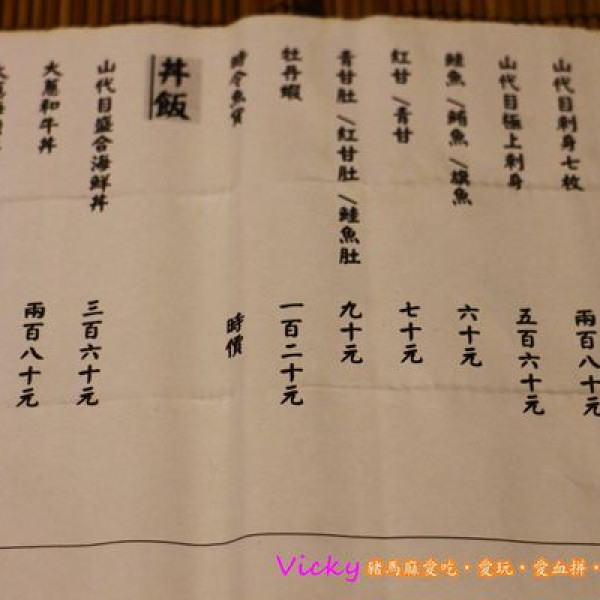 山代目刺身七枚
兩百八十元
山代目極上刺身
五百六十元
鮭魚/鮪魚/旗魚
六十元
紅甘/青甘
七十元
青甘肚/紅甘肚/鮭魚肚
九十元
牡丹蝦
一百二十元
時令魚貨
時價
丼飯
山代目盛合海鮮丼
三百六十元
火蔥和牛丼
兩百八十元
Vicky 豬馬麻愛吃・愛玩・愛血拼・